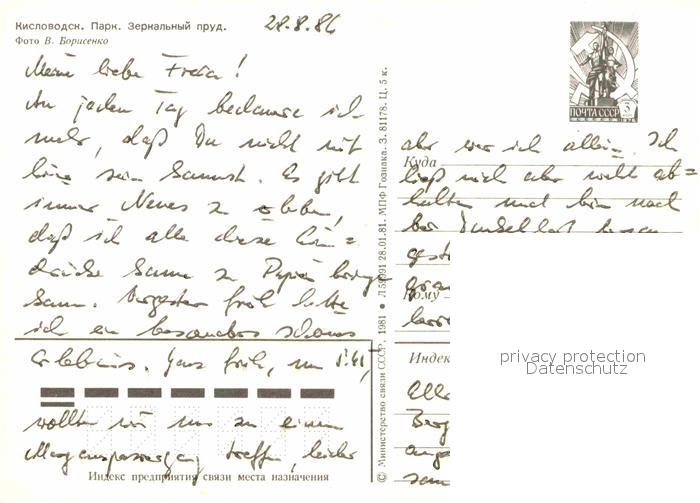 Кисловодск. Парк. Зеркальный пруд.
Фото В. Борисенко
28.8.86
Meine liebe Freia!
An jedem Tag bedaure ich
mehr, daß Du nicht mit
hier sein kannst. Es gibt
immer Neues zu erleben,
daß ich alle diese Ein=
drücke kaum zu Papier bringe
kann. Vorgestern früh hatte
ich ein besonders schönes
Erlebnis. Ganz früh, um 5.45,
wollten wir uns zu einem
Morgenspaziergang treffen, leider
Индекс предприятия связи места назначения
© Министерство связи СССР, 1981 • Л 59091 28.01.81. МПФ Гознака. З. 81178. Ц. 5 к.
ПОЧТА СССР
3
1976
aber war ich allein. Ich
Куда
ließ mich aber nicht ab=
halten und bin noch
bei Dunkelheit
Кому
Индекс
privacy protection
Datenschutz